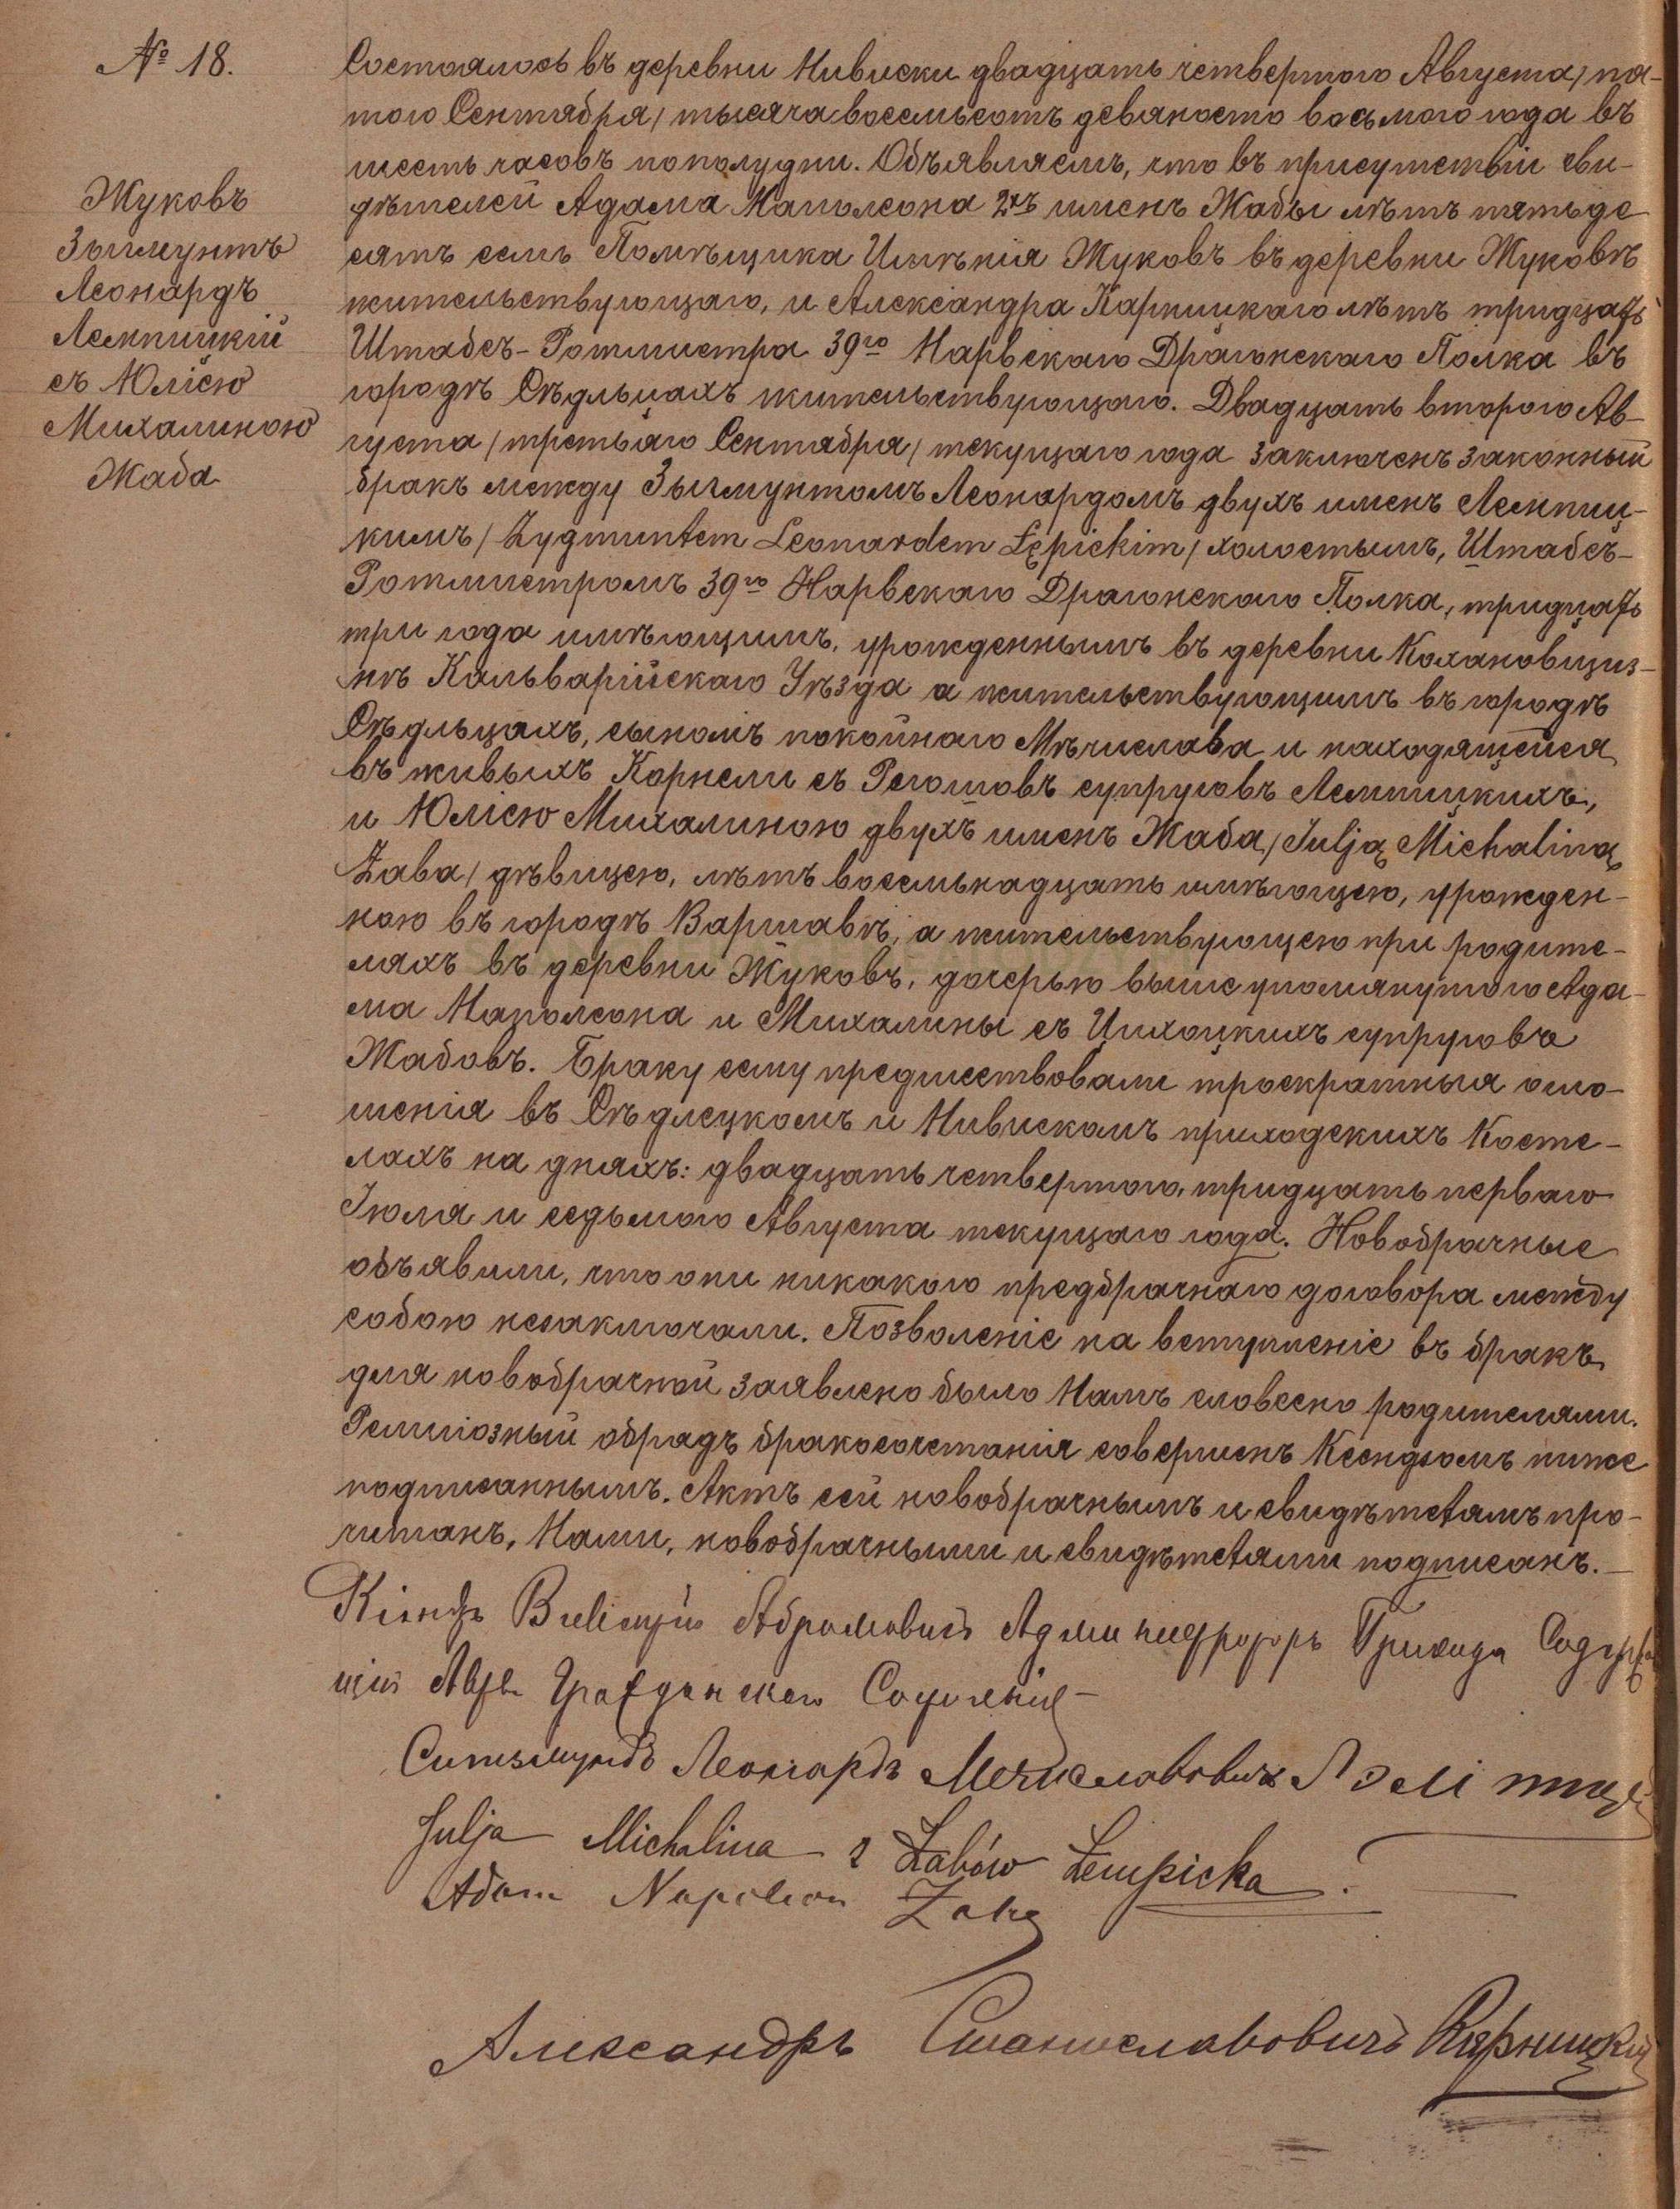 № 18.
Жуковъ
Зыгмунтъ
Леонардъ
Лемпицкій
съ Юліею
Михалиною
Жаба
Состоялось въ деревни Нивиски двадцать четвертого Августа /пя-
того Сентября/ тысяча восемьсотъ девяносто восьмого года въ
шесть часовъ пополудни. Объявляемъ, что въ присутствіи сви-
дѣтелей Адама Наполеона 2хъ именъ Жабы лѣтъ пятьде
сятъ семь Помѣщика Имѣнія Жуковъ въ деревни Жуковѣ
жительствующаго, и Александра Карницкаго лѣтъ тридцать
Штабсъ-Ротмистра 39го Нарвскаго Драгонскаго Полка въ
городѣ Сѣдльцахъ жительствующаго. Двадцать второго Ав-
густа /третьяго Сентября/ текущаго года заключенъ законный
бракъ между Зыгмунтомъ Леонардомъ двухъ именъ Лемпиц-
кимъ /Zygmuntem Leonardem Łępickim/ холостымъ, Штабсъ-
Ротмистромъ 39го Нарвскаго Драгонскаго Полка, тридцать
три года имѣющимъ, урожденнымъ въ деревни Кохановщиз-
нѣ Кальварійскаго Уѣзда а жительствующимъ въ городѣ
Сѣдльцахъ, сыномъ покойнаго Мѣчислава и находящейся
въ живыхъ Корнели съ супруговъ Лемпицкихъ,
и Юліею Михалиною двухъ именъ Жаба, /Julją Michaliną
Żaba/ дѣвицею, лѣтъ восемьнадцать имѣющею, урожден-
ною въ городѣ Варшавѣ, а жительствующею при родите-
ляхъ въ деревни Жуковъ, дочерью выше упомянутого Ада-
ма Наполеона и Михалины съ Цихоцкихъ супруговъ
Жабовъ. Браку сему предшествовали троекратныя огло-
шенія въ Сѣдлецкомъ и Нивискомъ приходскихъ Косте-
лахъ на дняхъ: двадцать четвертого, тридцать перваго
Іюля и седьмого Августа текущаго года. Новобрачные
объявили, что они никакого предбрачнаго договора между
собою незаключали. Позволеніе на вступленіе въ бракъ
для новобрачной заявлено было Намъ словесно родителями.
Религіозный обрадъ бракосочетанія совершенъ Ксендзомъ ниже
подписаннымъ. Актъ сей новобрачнымъ и свидѣтелямъ про-
читанъ, Нами, новобрачными и свидѣтелями подписанъ.—
Ксіондзъ Абрамовичъ Администраторъ Прихода Содержа
щій Акты Гражданскаго Состоянія—
Сигизмундъ Леонардъ Мечиславовичъ
Julja Michalina z Żabów Łempicka.
Adam Napoleon Żaba
Александръ Станиславовичъ Карницкій